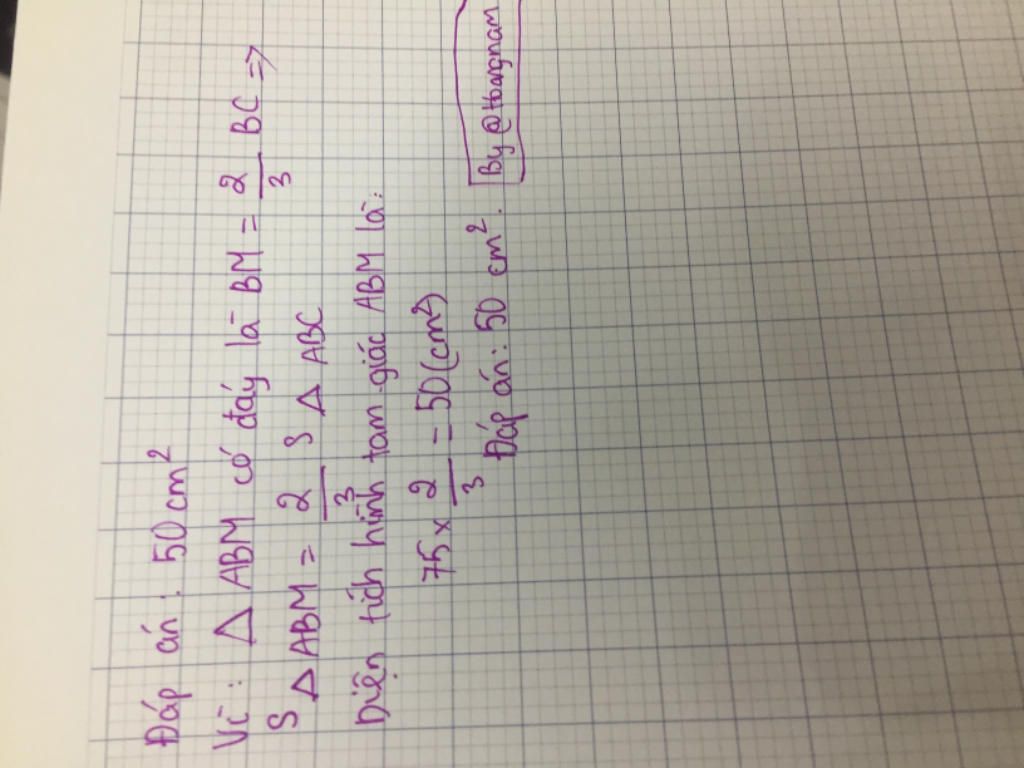 Đáp án: 50cm²
Vì: Δ ABM có đáy là BM = 2/3 BC =>
S Δ ABM = 2/3 S Δ ABC
Diện tích hình tam giác ABM là:
75 x 2/3 = 50(cm²)
Đáp án: 50 cm².
By @Hoangnam